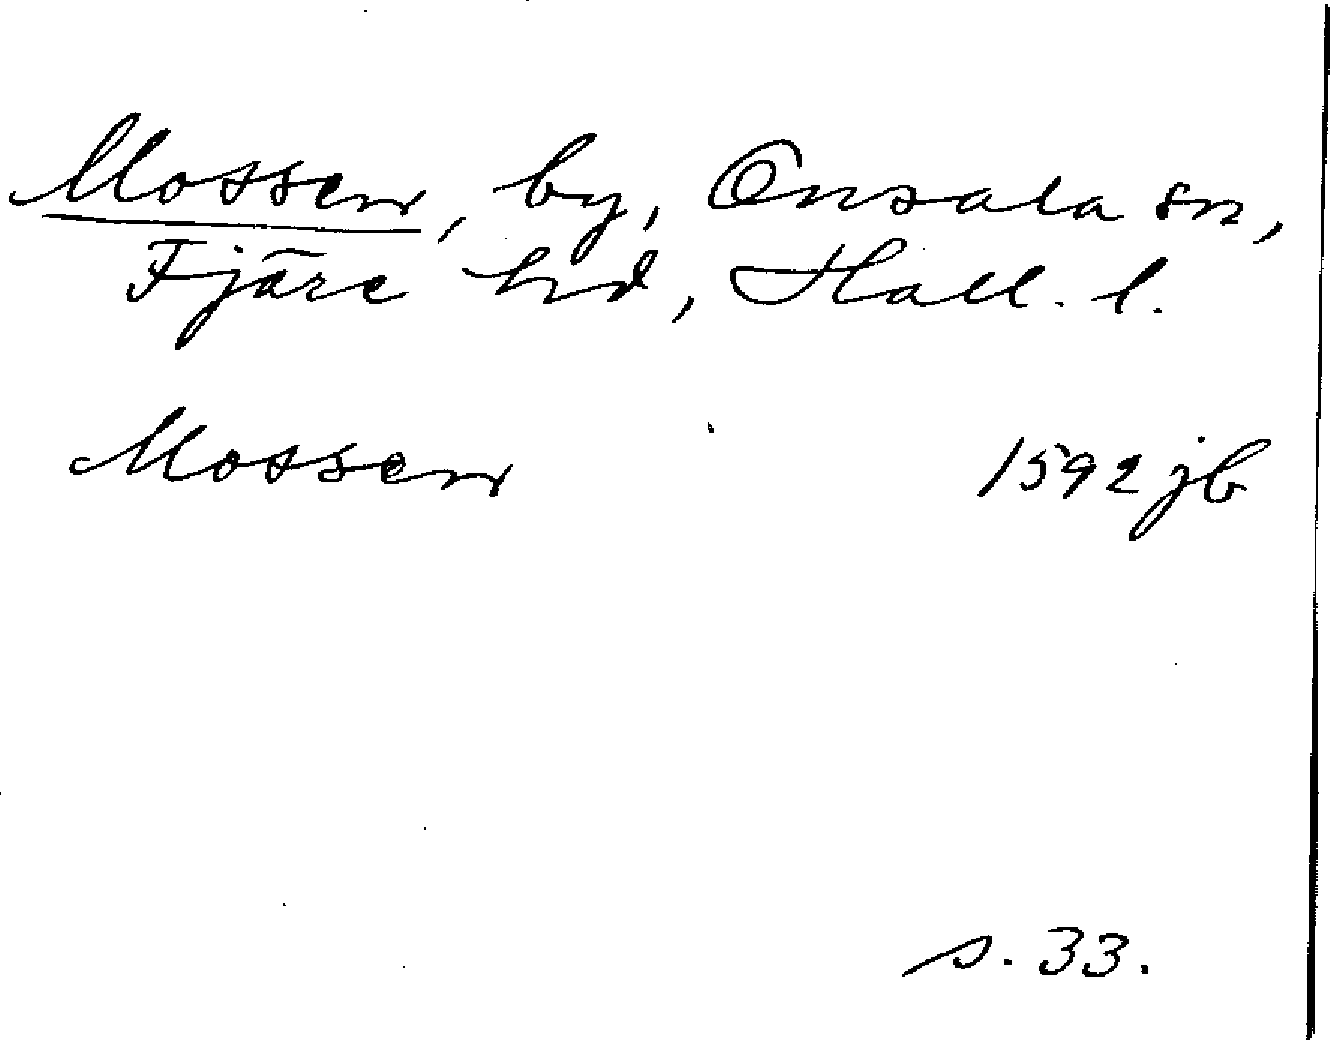 Mossen, by, Onsala sn,
Fjäre hd, Hall. l.
Mossen 1592 jb
s. 33.